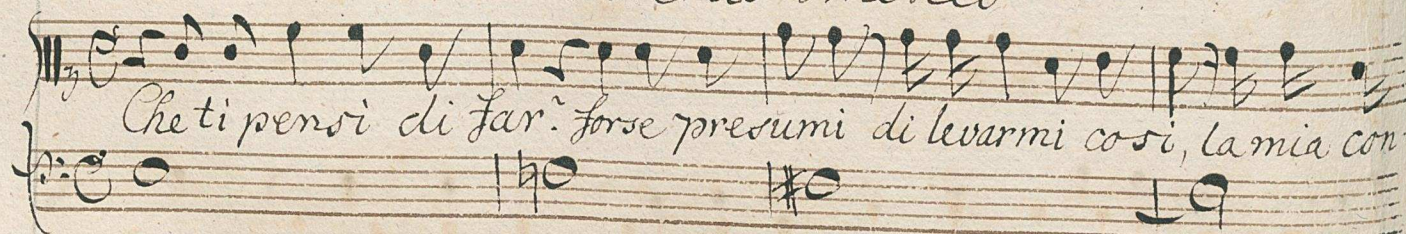 Che ti pensi di far? forse presumi di levarmi così, la mia con